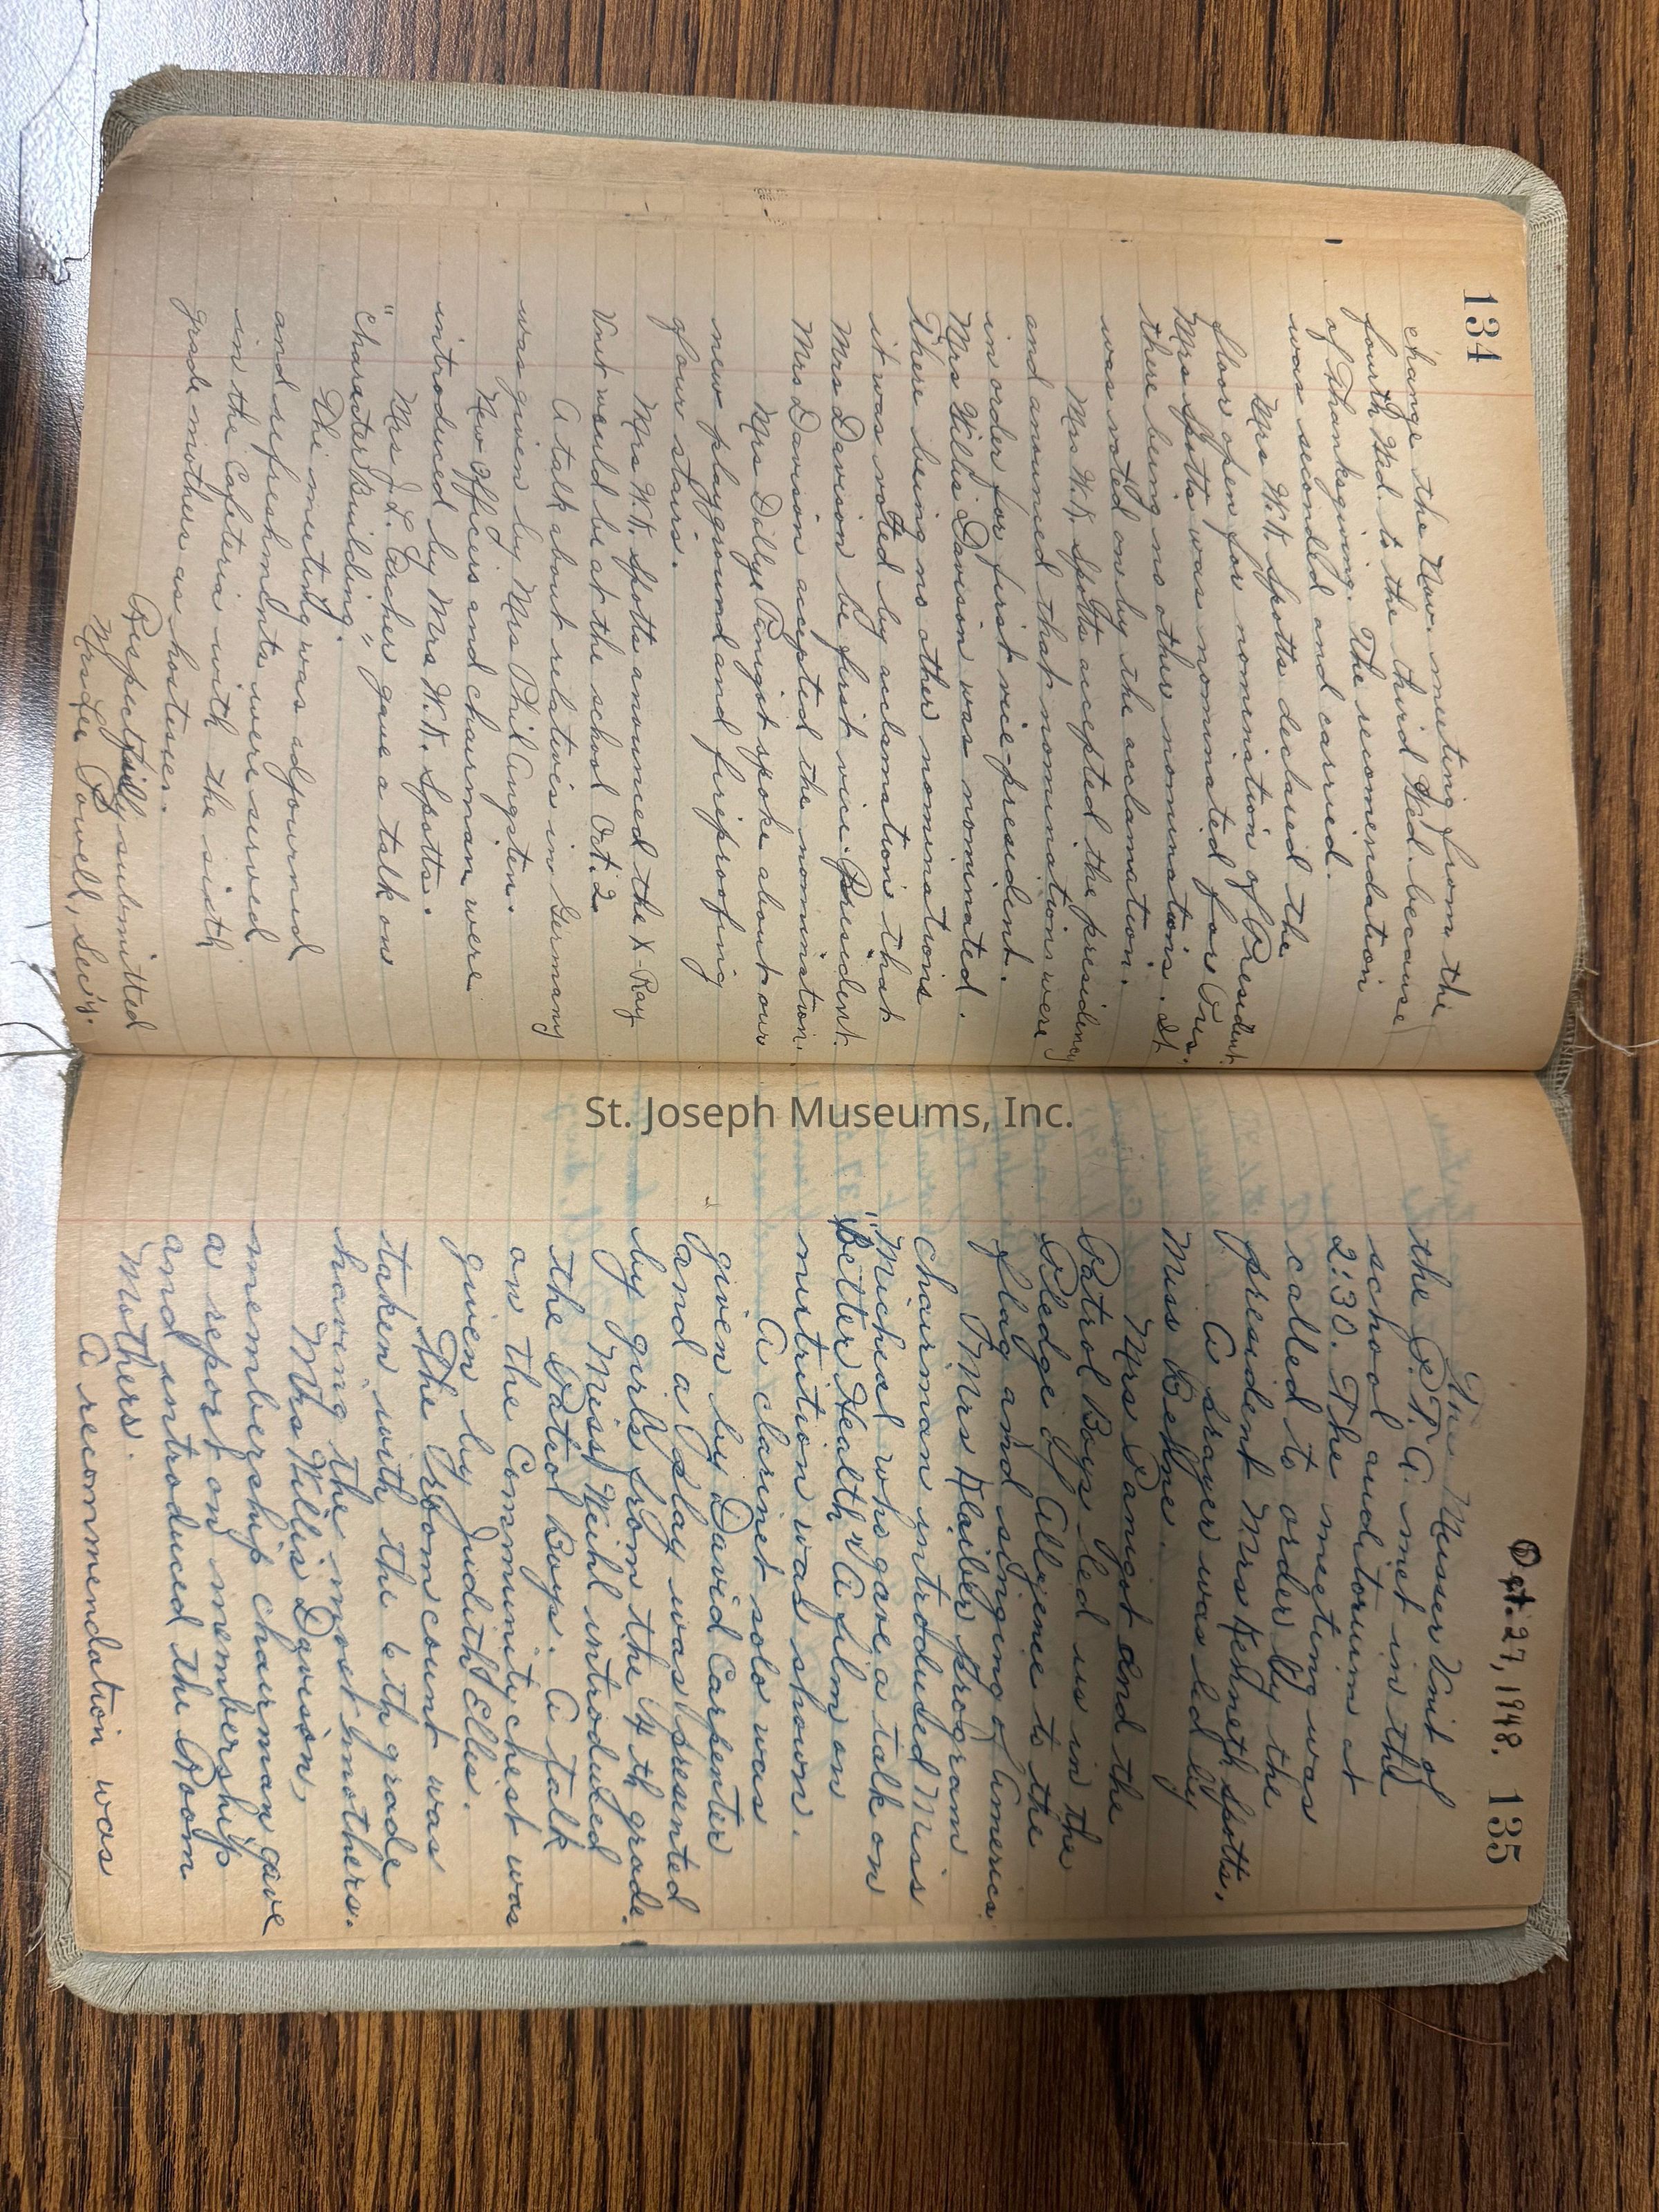 134
change the Nov. meeting from the
fourth Wed. to the third Wed. because
of Thanksgiving. The recomendation
was seconded and carried.
Mrs W.K. Spotts declared the
floor open for nomination of President.
Mrs Spotts was nominated for Pres.
there being no other nominations. It
was voted on by the acclamation.
Mrs W.K. Spotts accepted the presidency
and anounced that nominations were
in order for first vice-president.
Mrs Willis Davison was nominated.
There being no other nominations
it was voted by aclamation that
Mrs Davison be first vice-President.
Mrs Davison accepted the nomination.
Mrs Dillye Panigot spoke about our
new playground and fireproofing
of our stairs.
Mrs W.K. Spotts anounced the X-Ray
Unit would be at the school Oct. 2.
A talk about relatives in Germany
was given by Mrs Phil Angsten.
New Officers and chairman were
introduced by Mrs W.K. Spotts.
Mrs J.L. Carcher gave a talk on
"Character Building."
The meeting was adjourned
and refreshments were served
in the Cafeteria with the sixth
grade mothers as hostesses.
Respectfully submitted
Mrs Lee Powell, Sec'y.
Oct. 27, 1948. 135
The Musser Unit of
the P.T.A. met in the
school auditorium at
2:30. The meeting was
called to order by the
president Mrs Kenneth Spotts.
A prayer was led by
Miss Bellne.
Mrs Panigot and the
Patrol Boys led us in the
Pledge of Allegience to the
flag and singing of America.
Mrs Klaiber program
chairman introduced Miss
Micheal who gave a talk on
"Better Health" A film on
nutrition was shown.
A clarinet solo was
given by David Carpenter
and a play was presented
by girls from the 4th grade.
Miss Weihl introduced
the Patrol Boys. A talk
on the Community chest was
given by Judith Ellis.
The room count was
taken with the 6th grade
having the most mothers.
Mrs Willis Davison,
membership chairman gave
a report on membership
and introduced the Room
Mothers.
A recommendation was
St. Joseph Museums, Inc.